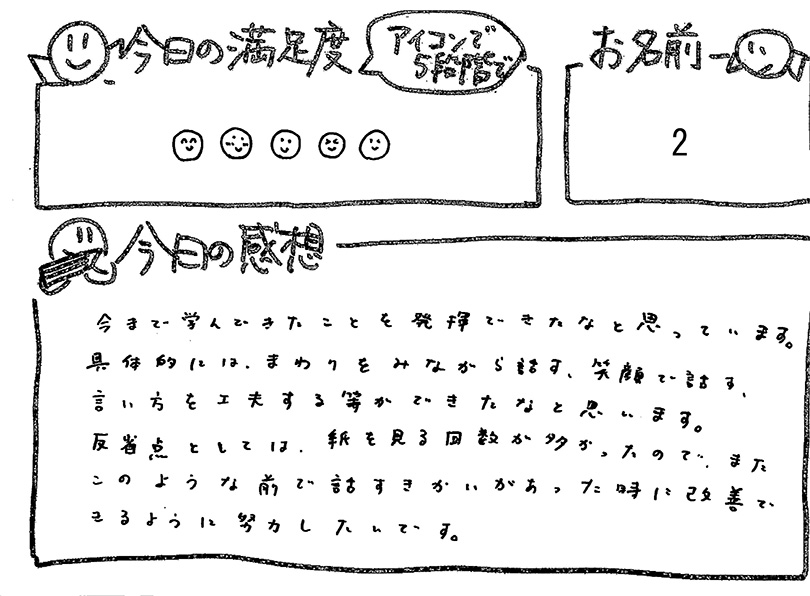 今日の満足度
アイコンで
5段階で
お名前
2
今日の感想
今まで学んできたことを発揮できたなと思っています。
具体的には、まわりをみながら話す、笑顔で話す、
言い方を工夫する等ができたなと思います。
反省点としては、紙を見る回数が多かったので、また
このような前で話すきかいがあった時に改善で
きるように努力したいです。